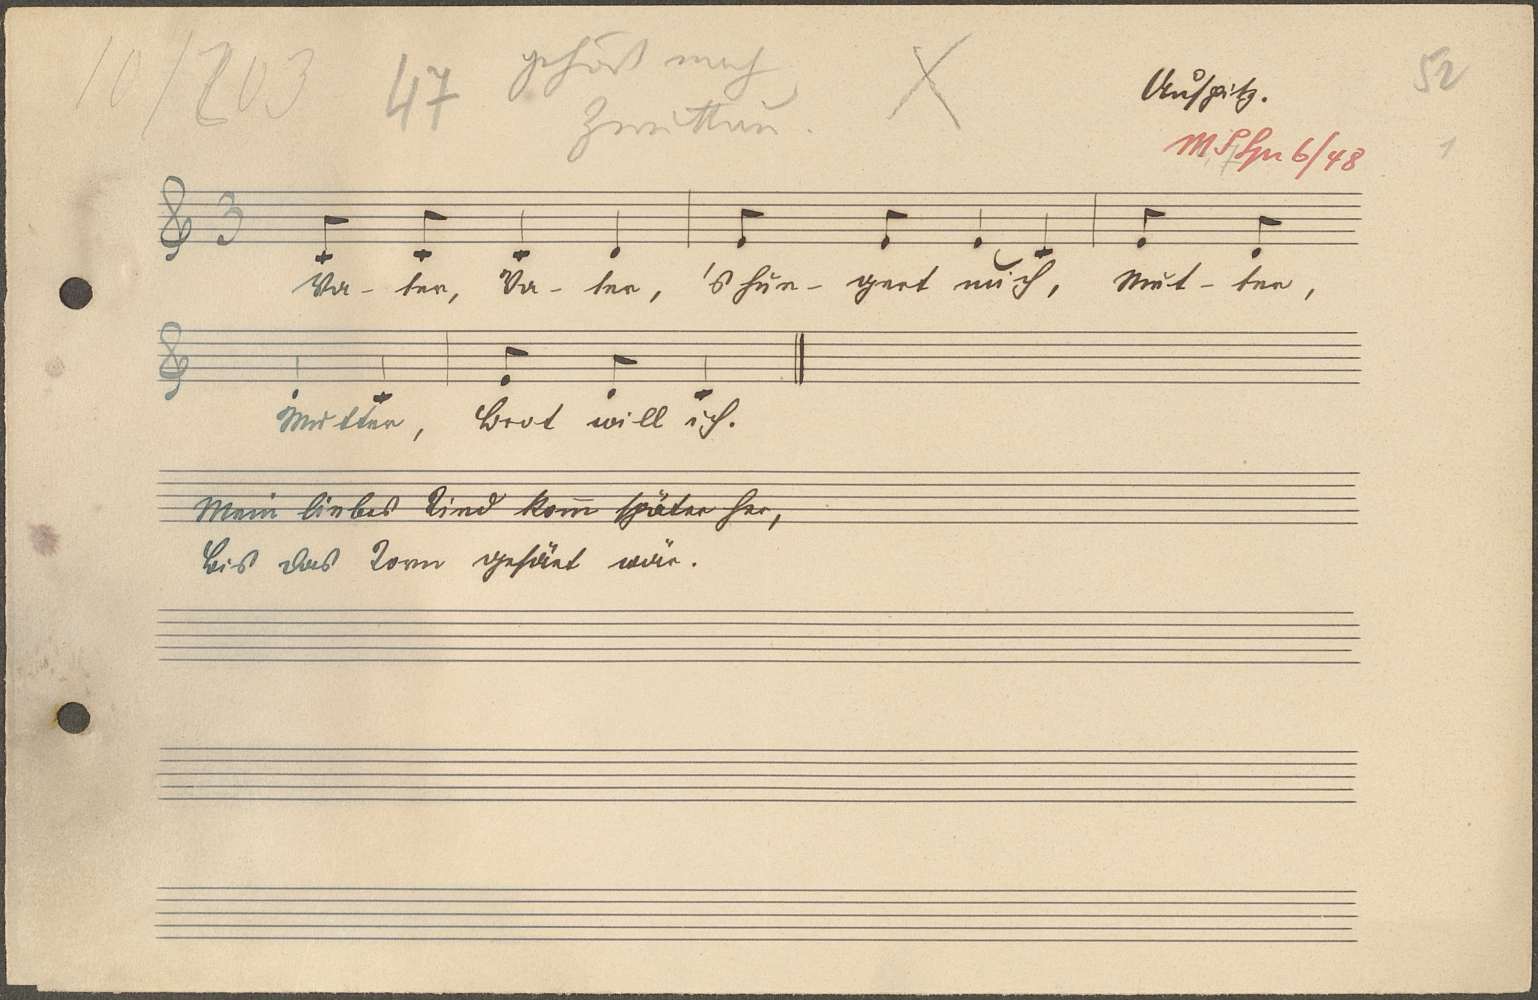 10/203 47 gehört nach X Auspitz. 52
Zwittau. 1
6/48
3
Va- ter, Va- ter, 's hun- gert mich, Mut- ter,
Mutter, Brot will ich.
Mein liebes Kind kom̅ später her,
bis das Korn gesäet wär.